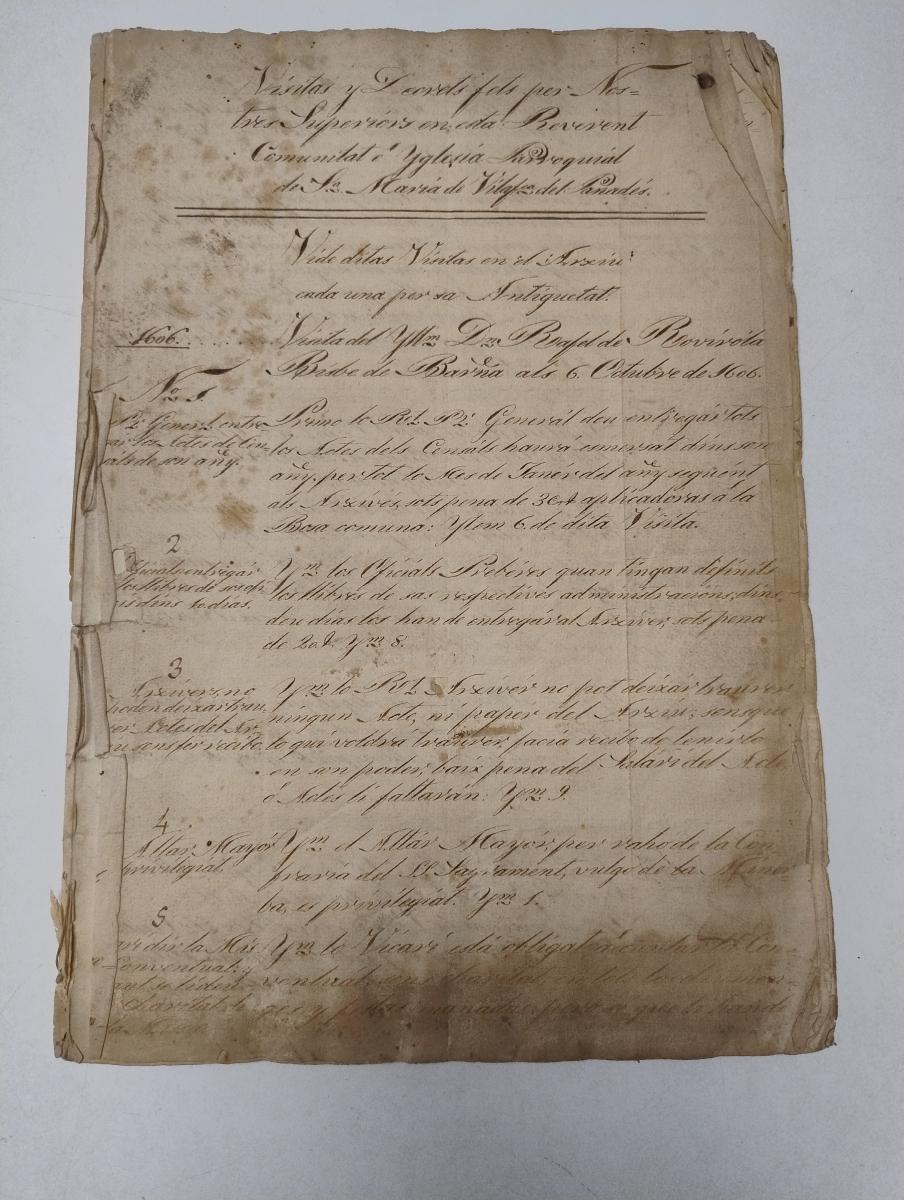 Visitas y Decrets fets per Nos=
tres Superiors en eda Reverent
Comunitat é Yglesia Parroquial
de Sta. María de Vilafca. del Panadés.
Vide ditas Visitas en el Arxiu
cada una per sa Antiguetat.
1606.
Visita del Yllm. Dn. Rafel de Rovirola
Bisbe de Barna als 6. Octubre de 1606.
No. 1.
Pr. General entre
gar los Actes de Cen
sals de son añy.
Primo lo Rt. Pr. General deu entregar tots
los Actes dels Censals haurá esmersat dins son
añy, per tot lo Mes de Janér del añy seguent
als Arxivér, sots pena de 3 aplicadoras á la
Bosa comuna: Ytem 6. de dita Visita.
2
Oficials entregar
los llibres de sos ofi
cis dins 10 dias.
Ym. los Oficials Prebéres quan tingan definits
los llibres de sas respectives administracions, dins
deu dias los han de entregar al Arxiver, sots pena
de 20 Ym 8.
3
Arxivers, no
poden deixar trau
rer Actes del Ar
xiu sens fer recibo.
Ym. lo Rt. Arxivér no pot deixar traurer
ningun Acte, ni paper del Arxiu, sens que
lo qui voldrá traurer, facia recibo de tenirlo
en son poder, baix pena del Salári del Acte
ó Actes li faltarán: Ym. 9.
4
Altar Mayór
privilegiat.
Ym. el Altár Mayór, per raho de la Con
fraria del SS. Sagrament, vulgo de la Miner
ba, es privilegiat. Ym 1.
5
dir la Mis
Conventual: y
Charitat
Ym lo Vicari está obligat á Con
ventual, sens charitat, en tots los diumen
ges y festas manadas, pero se que li